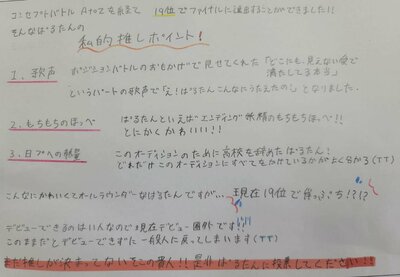 コンセプトバトル AtoZを経て 19位でファイナルに進出することができました!!
そんなぱるたんの
私的推しポイント!
1, 歌声 ポジションバトルのおもかげで見せてくれた「どこにも見えない愛で
満たしてる本当」
というパートの歌声で「え!ぱるたんこんなにうたえたの!」となりました.
2, もちもちのほっぺ ぱるたんといえばエンディング妖精のもちもちほっぺ!!
とにかくかわいいい!!
3, 日プへの熱量 このオーディションのために高校を辞めたぱるたん!
どれだけこのオーディションにすべてをかけているかがよく分かる(TT)
こんなにかわいくてオールラウンダーなぱるたんですが... 現在19位で崖っぷち?!?
デビューできるのは11人なので現在デビュー圏外です!!
このままだとデビューできずに一般人に戻ってしまいます(TT)
まだ推しが決まってないそこの貴人!!是非ぱるたんに投票してください!!!